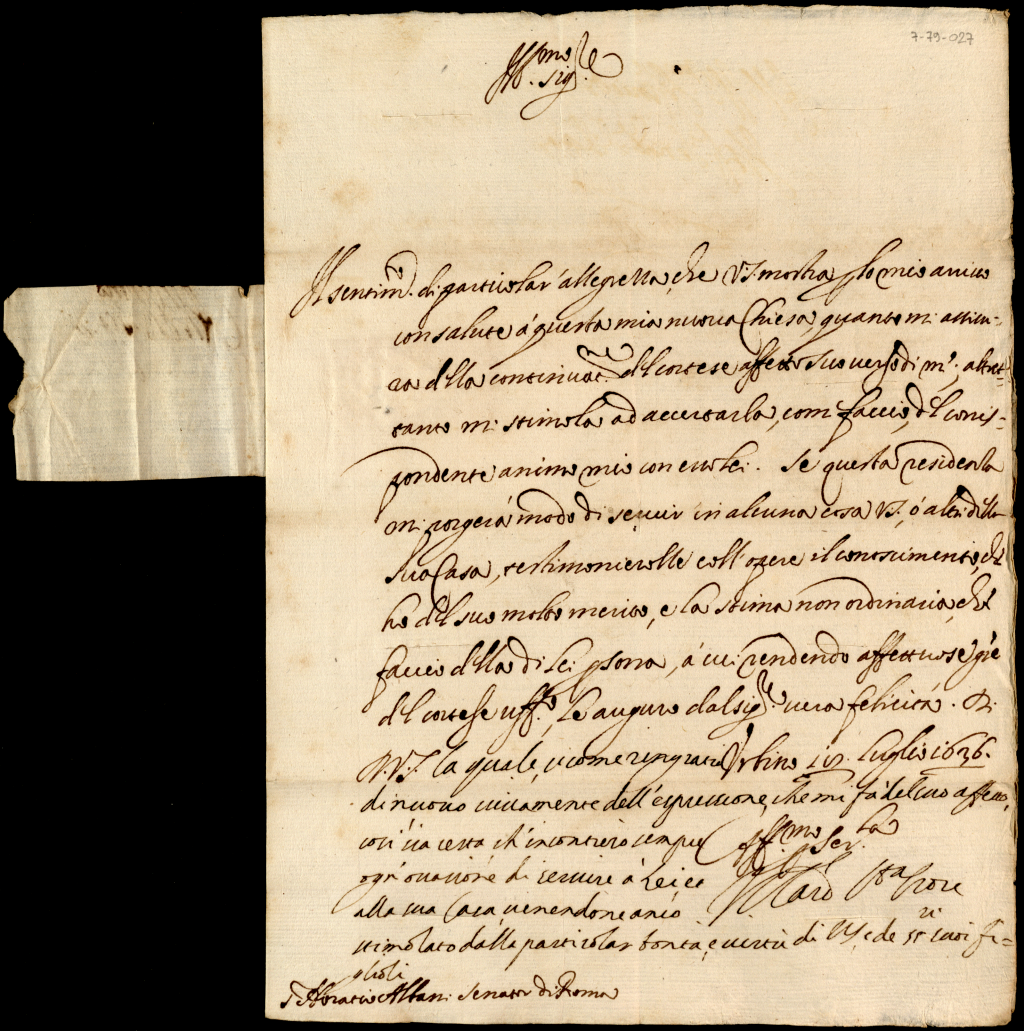 7-79-027
Ill.mo Sig.re
Il sentim.o di particolar' allegrezza, che V.S. mostra p lo mio arrivo
con salute á questa mia nuova Chiesa, quanto mi assicu-
ra della continuat.ne del cortese affetto suo verso di me, altret-
tanto mi stimola ad accertarla, come faccio, del corris-
pondente animo mio con esso lei. Se questa residenza
mi porgerá modo di servir in alcuna cosa V.S. ó altri della
sua Casa, testimonierolle coll'opere il conoscimento, che
ho del suo molto merito, e la stima non ordinaria, che
faccio della di Lei psona, á cui rendendo affettuose gre
del cortese uff.o, le auguro dal Sig.re vera felicitá. Di
V.S. la quale, sicome ringratio Urbino Luglio 1636.
di nuovo vivamente dell'espressione, che mi fà del suo affetto,
così sia certa ch'incontrerò sempre Aff.mo Ser.
ogn'occasione di servire à Lei et Card
alla sua Casa, venendone anco
stimolato dalla particolar bontà, e virtù di VS, e de ss.ri suoi fi-
glioli
S. Horatio Albani Senator di Roma